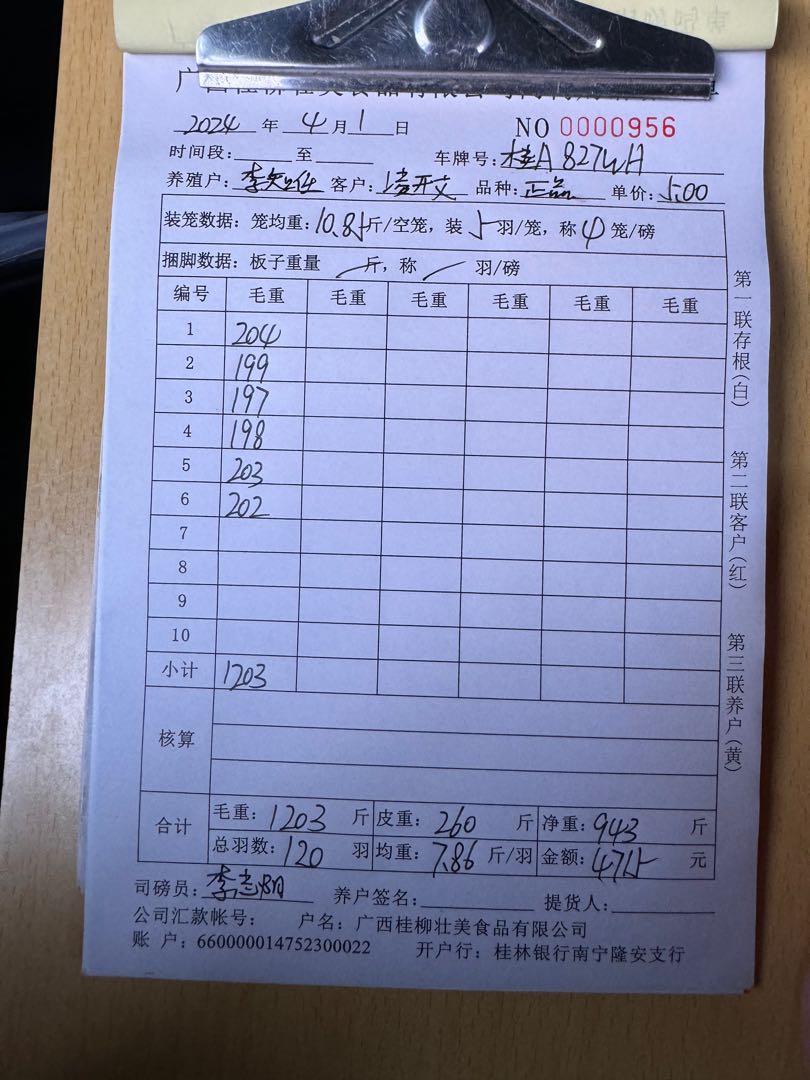 2024 年 4 月 1 日 NO 0000956
时间段: 至 车牌号: 桂A 827WH
养殖户: 客户: 品种: 正品 单价: 5.00
装笼数据: 笼均重: 10.85 斤/空笼, 装 5 羽/笼, 称 4 笼/磅
捆脚数据: 板子重量 / 斤, 称 / 羽/磅
编号 毛重 毛重 毛重 毛重 毛重 毛重
1 204
2 199
3 197
4 198
5 203
6 202
7
8
9
10
小计 1203
核算
合计 毛重: 1203 斤 皮重: 260 斤 净重: 943 斤
总羽数: 120 羽 均重: 7.86 斤/羽 金额: 4715 元
司磅员: 李志明 养户签名: 提货人:
公司汇款帐号: 户名: 广西桂柳壮美食品有限公司
账 户: 660000014752300022 开户行: 桂林银行南宁隆安支行
第一联存根(白)
第二联客户(红)
第三联养户(黄)